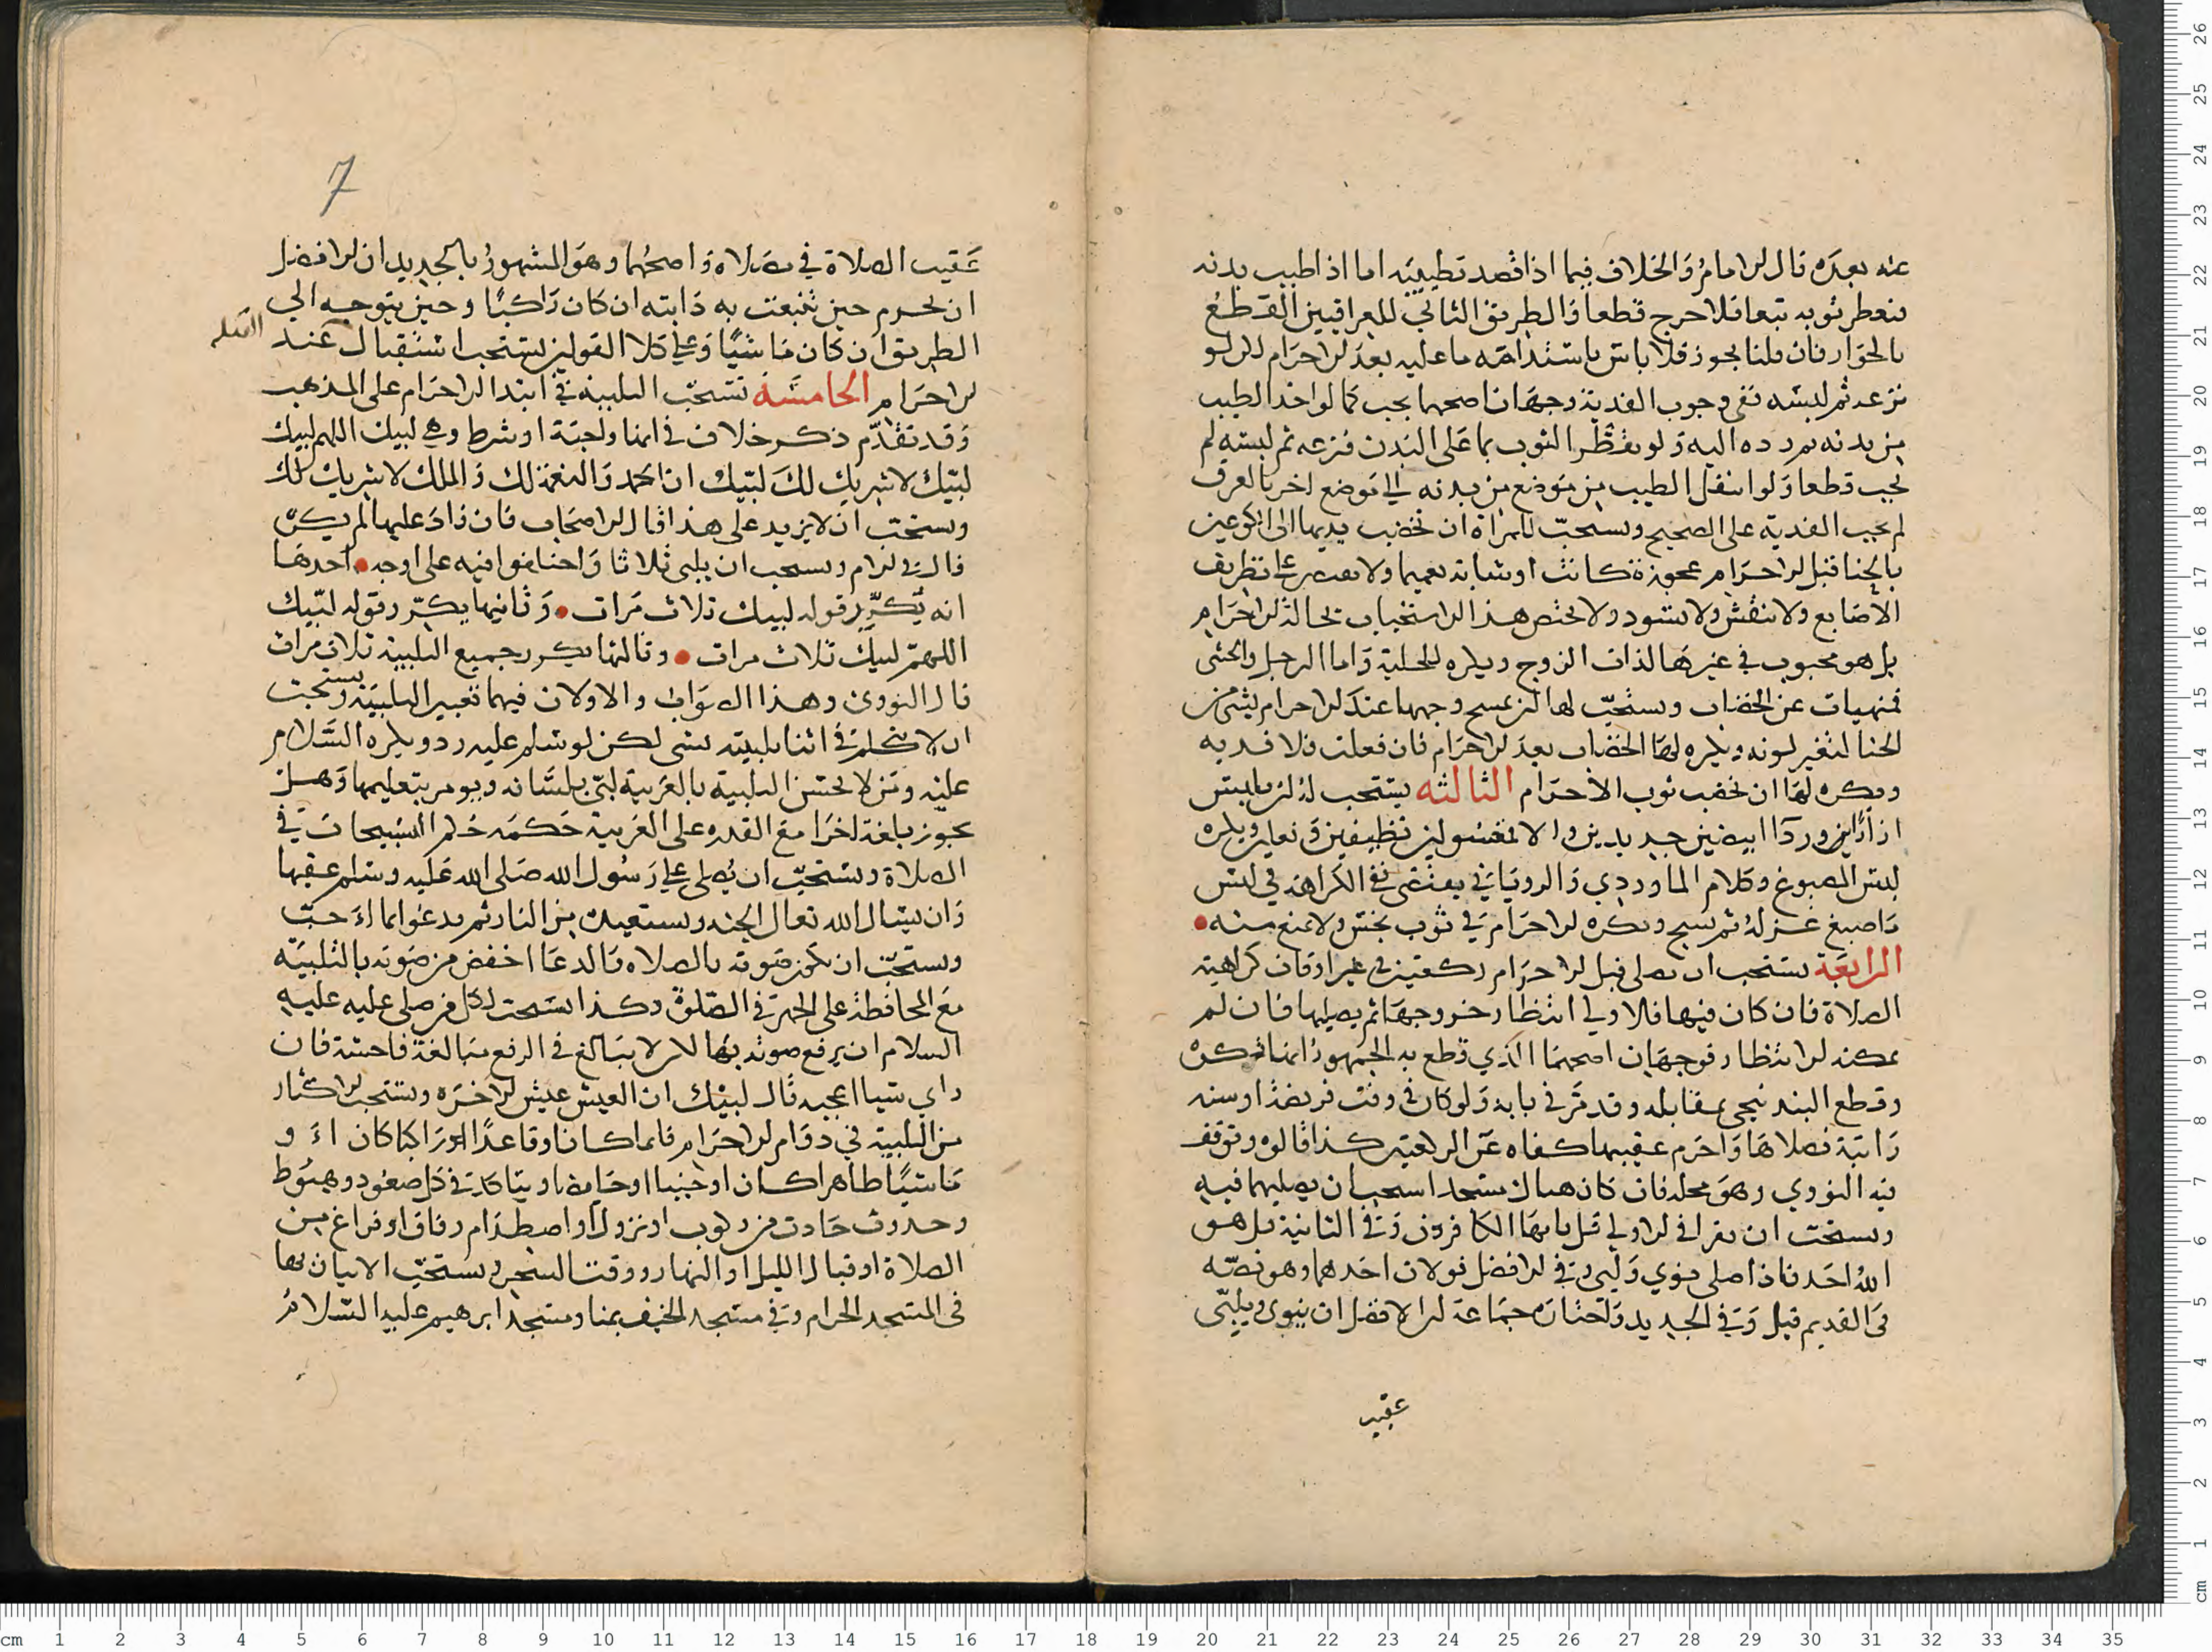 عنه بعده قال الامام والخلاف فيما اذا قصد تطييبه اما اذا طيب بدنه
فتعطر ثوبه تبعا فلا حرج قطعا والطريق الثاني للعراقيين القطع
بالجواز فان قلنا يجوز فلا باس باستدامه ما عليه بعد الاحرام لكن لو
نزعه ثم لبسه ففي وجوب الفدية وجهان اصحهما يجب كما لو اخذ الطيب
من بدنه ثم رده اليه ولو تعطر الثوب بما على البدن فنزعه ثم لبسه لم
يجب قطعا ولو انتقل الطيب من موضع من بدنه الى موضع اخر بالعرق
لم يجب الفدية على الصحيح ويستحب للمراة ان تخضب يديها الى الكوعين
بالحنا قبل الاحرام عجوزة كانت او شابة تعميما ولا تطريف
الاصابع ولا تنقش ولا تسود ولا يختص هذا الاستحباب بحالة الاحرام
بل هو محبوب في غيرها لذات الزوج ويكره للخلية واما الرجل والخنثى
فمنهيات عن الخضاب ويستحب لها ان تمسح وجهها عند الاحرام بشي من
الحنا لتغير لونه ويكره لها الخضاب بعد الاحرام فان فعلت فلا فديه
ويكره لها ان تخضب ثوب الاحرام الثالثه يستحب له ان يلبس
ازارا وردآ ابيضين جديدين والا مغسولين نظيفين ونعلين ويكره
لبس المصبوغ وكلام الماوردي والروياني يقتضي نفي الكراهة في لبس
ما صبغ غزله ثم نسج ويكره الاحرام في ثوب نجس ولا يمنع منه
الرابعة يستحب ان يصلي قبل الاحرام ركعتين في غير اوقات كراهية
الصلاة فان كان فيها فالاولى انتظار خروجها ثم يصليها فان لم
يمكنه الانتظار فوجهان اصحهما الذي قطع به الجمهور انها تكره
وقطع البندنيجي بمقابله وقد مر في بابه ولو كان في وقت فريضة او سنه
راتبة فصلاها واحرم عقيبها كفاه عن الركعتين كذا قالوه وتوقف
فيه النووي وهو محله فان كان هناك مسجد استحب ان يصليهما فيه
ويستحب ان يقرا في الاولى قل يا ايها الكافرون وفي الثانية قل هو
الله احد فاذا صلى نوى ولبى وفي الافضل قولان احدهما وهو نصه
في القديم قيل وفي الجديد واختاره جماعة ان الافضل ان ينوي ويلبي
عقيب
7
عقيب الصلاة في مصلاه واصحهما وهو المشهور بالجديد ان الافضل
ان يحرم حين تنبعث به دابته ان كان راكبا وحين يتوجه الى
الطريق ان كان ماشيا وعلى كلا القولين يستحب استقبال عند
القبله
الاحرام الخامسة تستحب التلبية في ابتدا الاحرام على المذهب
وقد تقدم ذكر خلاف في انها واجبة او شرط وهي لبيك اللهم لبيك
لبيك لا شريك لك لبيك ان الحمد والنعمة لك والملك لا شريك لك
ويستحب ان لا يزيد على هذا قال الاصحاب فان زاد عليها لم يكره
قال في الام ويستحب ان يلبى ثلاثا واختلفوا فيه على اوجه احدها
انه يكرر قوله لبيك ثلاث مرات وثانيها يكرر قوله لبيك
اللهم لبيك ثلاث مرات وثالثها يكرر جميع التلبية ثلاث مرات
قال النووي وهذا الصواب والاولان فيهما تغيير التلبية ويستحب
ان لا يتكلم في اثنا تلبيته بشي لكن لو سلم عليه رد ويكره السلام
عليه ومن لا يحسن التلبية بالعربية لبى بلسانه ويومر بتعليمها وهل
يجوز بلغة اخرا مع القدره على العربية حكمه حكم التسبيحات في
الصلاة ويستحب ان يصلى على رسول الله صلى الله عليه وسلم عقبها
وان يسال الله تعال الجنه ويستعيذ من النار ثم يدعوا بما احب
ويستحب ان يكون صوته بالصلاه والدعا اخفض من صوته بالتلبيه
مع المحافظة على الجهر في الصلوة وكذا يستحب لكل من صلى عليه عليه
السلام ان يرفع صوته بها لكن لا يبالغ في الرفع مبالغة فاحشة فان
راي شيا اعجبه قال لبيك ان العيش عيش الاخره ويستحب الاكثار
من التلبية في دوام الاحرام قائما كان او قاعدا راكبا كان او
ماشيا طاهرا كان او جنبا او حايضا ويتاكد في كل صعود وهبوط
وحدوث حادث من ركوب او نزول او اصطدام رفاق او فراغ من
الصلاة او اقبال الليل او النهار ووقت السحر ويستحب الاتيان بها
في المسجد الحرام وفي مسجد الخيف بمنا ومسجد ابرهيم عليه السلام